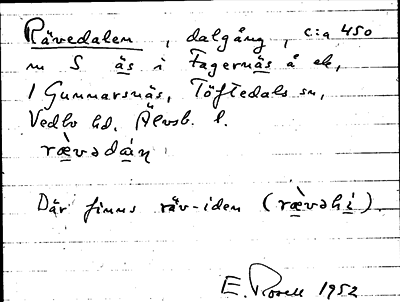 Rävedalen, dalgång, c:a 450
m S äs i Fagernäs å ek,
1 Gunnarsnäs, Töftedals sn,
Vedbo hd. Älvsb. l.
rὲvədán
Där finns räv-iden (rὲvəhi)
E. Rosell 1952